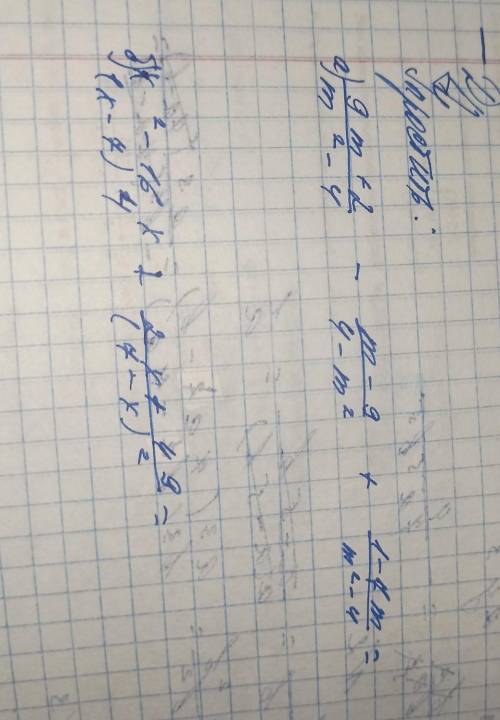 Упростить:
а) (9m+2)/(m²-4) - (m-9)/(4-m²) + (1-7m)/(m²-4) =
б) (x²-16x)/(x-7)⁴ + (2x+49)/(7-x)² =